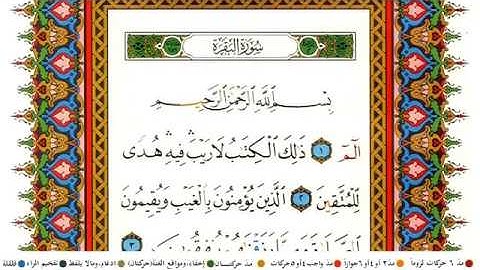 سُورَةُ البَقَرَةِ
بِسْمِ ٱللَّهِ ٱلرَّحْمَٰنِ ٱلرَّحِيمِ
الٓمٓ ١ ذَٰلِكَ ٱلْكِتَٰبُ لَا رَيْبَ ۛ فِيهِ ۛ هُدًى
لِّلْمُتَّقِينَ ٢ ٱلَّذِينَ يُؤْمِنُونَ بِٱلْغَيْبِ وَيُقِيمُونَ
ٱلصَّلَوٰةَ وَمِمَّا رَزَقْنَٰهُمْ يُنفِقُونَ ٣
مدّ ٦ حركات لزوماً مدّ ٢ أو ٤ أو ٦ جوازاً مدّ واجب ٤ أو ٥ حركات مدّ حركتان إخفاء، ومواقع الغنّة (حركتان) ادغام، وما لا يلفظ تفخيم الراء قلقلة